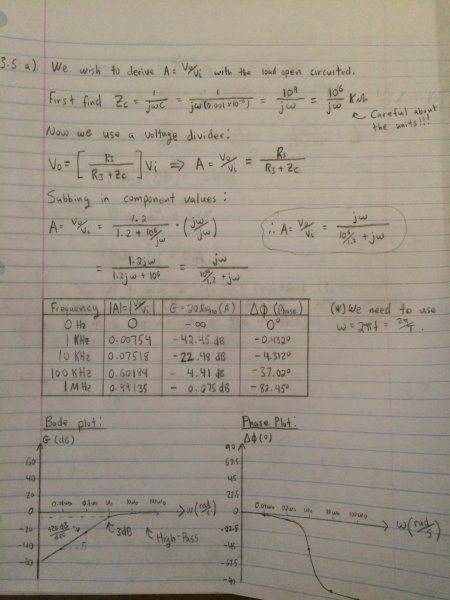 3.5 a) We wish to derive A = Vo/Vi with the load open circuited.
First find Zc = 1/jωC = 1/jω(0.001×10⁻⁶) = 10⁹/jω = 10⁶/jω KΩ
Careful about the units!!!
Now we use a voltage divider:
Vo = [R3/R3+Zc] Vi ⇒ A = Vo/Vi = R3/R3+Zc
Subbing in component values:
A = Vo/Vi = 1.2/1.2+10⁶/jω · (jω/jω)
∴ A = Vo/Vi = jω/10⁶/1.2+jω
= 1.2jω/1.2jω+10⁶ = jω/10⁶/1.2+jω
Frequency |A|=|Vo/Vi| G=20log10(A) Δϕ (Phase)
0 Hz 0 -∞ 0°
1 KHz 0.00754 -42.45 dB -0.432°
10 KHz 0.07518 -22.48 dB -4.312°
100 KHz 0.60184 -4.41 dB -37.02°
1 MHz 0.99135 -0.075 dB -82.45°
(*) We need to use
ω = 2πf = 2π/T.
Bode plot:
G (dB)
60
40
20
0
-20
-40
-60
0.01ω0 0.1ω0 ω0 10ω0 100ω0
ω(rad/s)
+20dB/dec
3dB
High-Pass
Phase Plot:
Δϕ(°)
90
67.5
45
22.5
0
-22.5
-45
-67.5
-90
0.01ω0 0.1ω0 ω0 10ω0 100ω0
ω(rad/s)